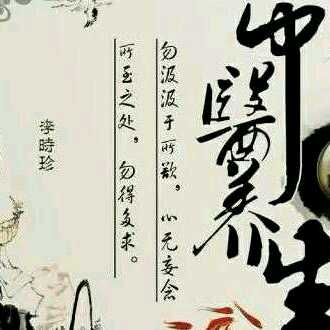 中醫养生
勿汲汲于所欲，心无妄念
所至之处，勿得多求。
李時珍